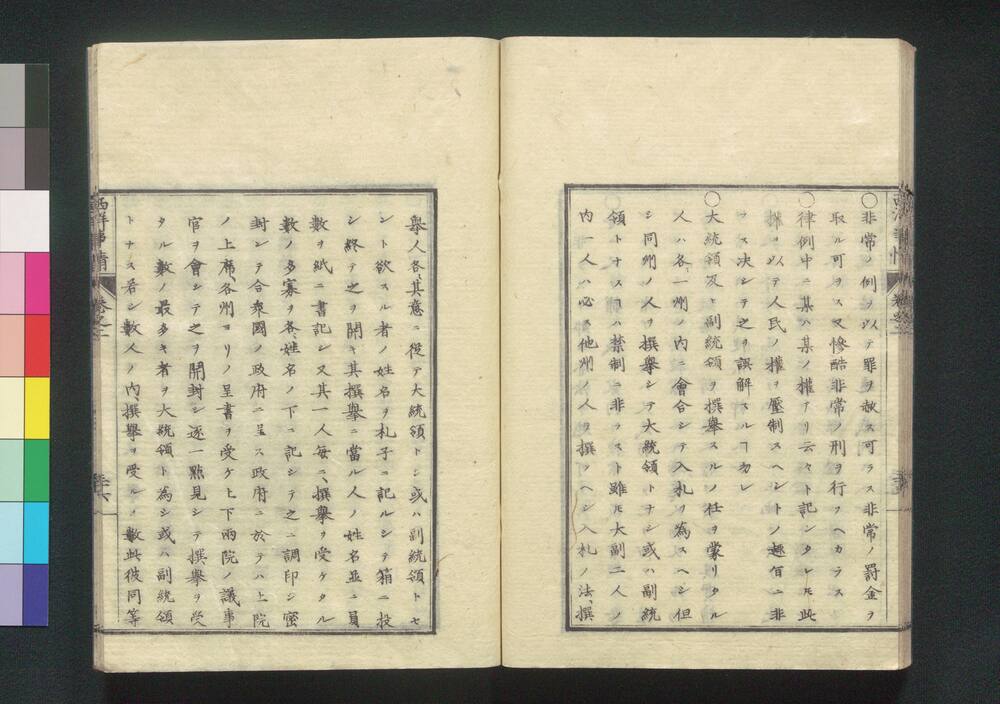 ○非常ノ例ヲ以テ罪ヲ赦ス可ラス非常ノ罰金ヲ
取ル可ラス又慘酷非常ノ刑ヲ行フヘカラス
○律例中ニ某ハ某ノ權アリ云々ト記シタレ𪜈此
ヲ以テ人民ノ權ヲ壓制スヘシトノ趣旨ニ非
ラス决シテ之ヲ誤解スルヿ勿レ
○大統領及ヒ副統領ヲ撰擧スルノ任ヲ蒙リタル
人ハ各〻一州ノ内ニ會合シテ入札ヲ為スヘシ但
シ同州ノ人ヲ撰擧シテ大統領トナシ或ハ副統
領トナスヿハ禁制ニ非ラスト雖𪜈大副二人ノ
内一人ハ必ス他州ノ人ヲ撰フヘシ入札ノ法、撰
擧人各〻其意ニ從テ大統領トシ或ハ副統領トセ
ント欲スル者ノ姓名ヲ札子ニ記ルシテ箱ニ投
シ終テ之ヲ開キ其撰擧ニ當ル人ノ姓名並ニ員
數ヲ紙ニ書記シ又其一人毎ニ撰擧ヲ受ケタル
數ノ多寡ヲ各姓名ノ下ニ記シテ之ニ調印シ密
封シテ合衆國ノ政府ニ呈ス政府ニ於テハ上院
ノ上席、各州ヨリノ呈書ヲ受ケ上下兩院ノ議事
官ヲ會シテ之ヲ開封シ逐一點見シテ撰擧ヲ受
タル數ノ最多キ者ヲ大統領ト為シ或ハ副統領
トナス若シ數人ノ内撰擧ヲ受ルノ數此彼同等
西洋事情 卷之二